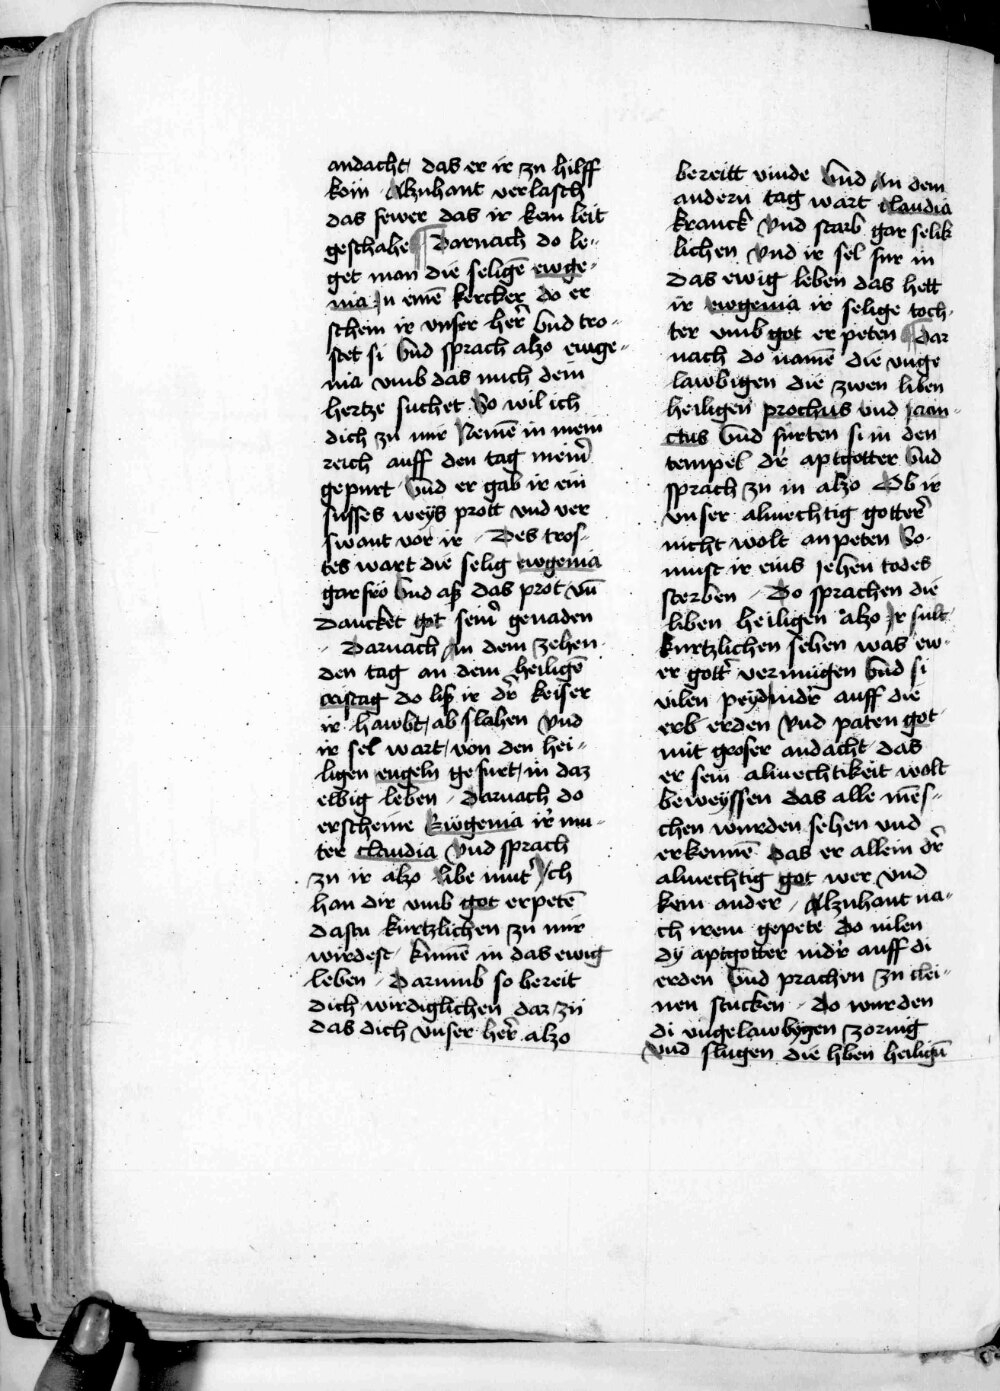 andacht das er ir zu hilff
kom · Alzuhant verlasch
das fewer das ir kein leit
geschahe ¶ Darnach do le-
get man die seligē ewge-
nia In einē kercker do er
schein ir vnser her̄ vnd tro-
stet si vnd sprach alzo ewge-
nia vmb das mich dein
hertze suchet So wil ich
dich zu mir Nemē in mein
reich auff den tag mein̄
gepurt · vnd er gab ir ein
susses weys prott vnd ver
swant vor ir · Des tros-
tes wart die selig ewgenia
gar fro vnd aß das prot vn̄
Dancket got sein̄ genaden
· Darnach An dem zehen
den tag an dem heiligē
cristag do liß ir dr̄ keiser
ir hawbt ab slahen vnd
ir sel wart von den hei-
ligen engeln gefurt in daz
elbig leben · Darnach do
erscheine Ewgenia ir̄ mu-
ter claudia vnd sprach
zu ir alzo libe mut̄ Ich
han dir vmb got erpetē
dastu kurtzlichen zu mir
wirdest kumē in das ewig
leben · Darumb so bereit
dich wirdiglichen dar zu
das dich vnser her̄ alzo
bereitt vinde vnd An dem
andern tag wart claudia
kranck vnd starb gar selik
lichen vnd ir sel fur in
das ewig leben das hett
ir ewgenia ir selige toch-
ter vmb got er peten ¶ Dar
nach do namē die vnge
lawbigen die zwen liben
heiligen prochus vnd Jacin-
ctus vnd furten si in den
tempel dr̄ aptgotter vnd
sprach zu in alzo Ob ir
vnser almechtig gotter̄
nicht wolt anpeten So
must ir eins Jehen todes
sterben · Do sprachen die
liben heiligen alzo Ir sult
kurtzlichen sehen was ew-
er gott̄ vermugen vnd si
vilen peyd nidr̄ auff die
erb erden vnd paten got
mit groser andacht das
er sein almechtikeit wolt
beweyssen das alle mēs-
chen wurden sehen vnd
erkennē das er allein dr̄
almechtig got wer vnd
kein ander · Alzuhant na-
ch irem gepete Do vilen
dy aptgotter nidr̄ auff di
erden vnd prachen zu clei-
nen stucken · Do wurden
di vngelawbygen zornig
vnd slugen die liben heilign̄